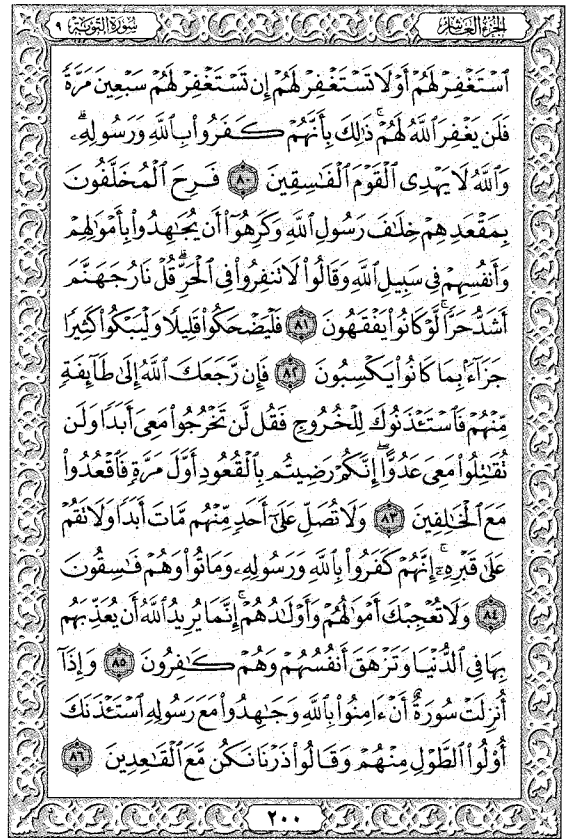 الجزء العاشر
سورة التوبة ٩
ٱسْتَغْفِرْ لَهُمْ أَوْ لَا تَسْتَغْفِرْ لَهُمْ إِن تَسْتَغْفِرْ لَهُمْ سَبْعِينَ مَرَّةً
فَلَن يَغْفِرَ ٱللَّهُ لَهُمْ ۚ ذَٰلِكَ بِأَنَّهُمْ كَفَرُوا۟ بِٱللَّهِ وَرَسُولِهِۦ ۗ
وَٱللَّهُ لَا يَهْدِى ٱلْقَوْمَ ٱلْفَـٰسِقِينَ ٨٠ فَرِحَ ٱلْمُخَلَّفُونَ
بِمَقْعَدِهِمْ خِلَـٰفَ رَسُولِ ٱللَّهِ وَكَرِهُوٓا۟ أَن يُجَـٰهِدُوا۟ بِأَمْوَٰلِهِمْ
وَأَنفُسِهِمْ فِى سَبِيلِ ٱللَّهِ وَقَالُوا۟ لَا تَنفِرُوا۟ فِى ٱلْحَرِّ ۗ قُلْ نَارُ جَهَنَّمَ
أَشَدُّ حَرًّا ۚ لَّوْ كَانُوا۟ يَفْقَهُونَ ٨١ فَلْيَضْحَكُوا۟ قَلِيلًا وَلْيَبْكُوا۟ كَثِيرًا
جَزَآءًۢ بِمَا كَانُوا۟ يَكْسِبُونَ ٨٢ فَإِن رَّجَعَكَ ٱللَّهُ إِلَىٰ طَآئِفَةٍ
مِّنْهُمْ فَٱسْتَـْٔذَنُوكَ لِلْخُرُوجِ فَقُل لَّن تَخْرُجُوا۟ مَعِىَ أَبَدًا وَلَن
تُقَـٰتِلُوا۟ مَعِىَ عَدُوًّا ۖ إِنَّكُمْ رَضِيتُم بِٱلْقُعُودِ أَوَّلَ مَرَّةٍ فَٱقْعُدُوا۟
مَعَ ٱلْخَـٰلِفِينَ ٨٣ وَلَا تُصَلِّ عَلَىٰٓ أَحَدٍ مِّنْهُم مَّاتَ أَبَدًا وَلَا تَقُمْ
عَلَىٰ قَبْرِهِۦٓ ۖ إِنَّهُمْ كَفَرُوا۟ بِٱللَّهِ وَرَسُولِهِۦ وَمَاتُوا۟ وَهُمْ فَـٰسِقُونَ
٨٤ وَلَا تُعْجِبْكَ أَمْوَٰلُهُمْ وَأَوْلَـٰدُهُمْ ۚ إِنَّمَا يُرِيدُ ٱللَّهُ أَن يُعَذِّبَهُم
بِهَا فِى ٱلدُّنْيَا وَتَزْهَقَ أَنفُسُهُمْ وَهُمْ كَـٰفِرُونَ ٨٥ وَإِذَآ
أُنزِلَتْ سُورَةٌ أَنْ ءَامِنُوا۟ بِٱللَّهِ وَجَـٰهِدُوا۟ مَعَ رَسُولِهِ ٱسْتَـْٔذَنَكَ
أُو۟لُوا۟ ٱلطَّوْلِ مِنْهُمْ وَقَالُوا۟ ذَرْنَا نَكُن مَّعَ ٱلْقَـٰعِدِينَ ٨٦
٢٠٠